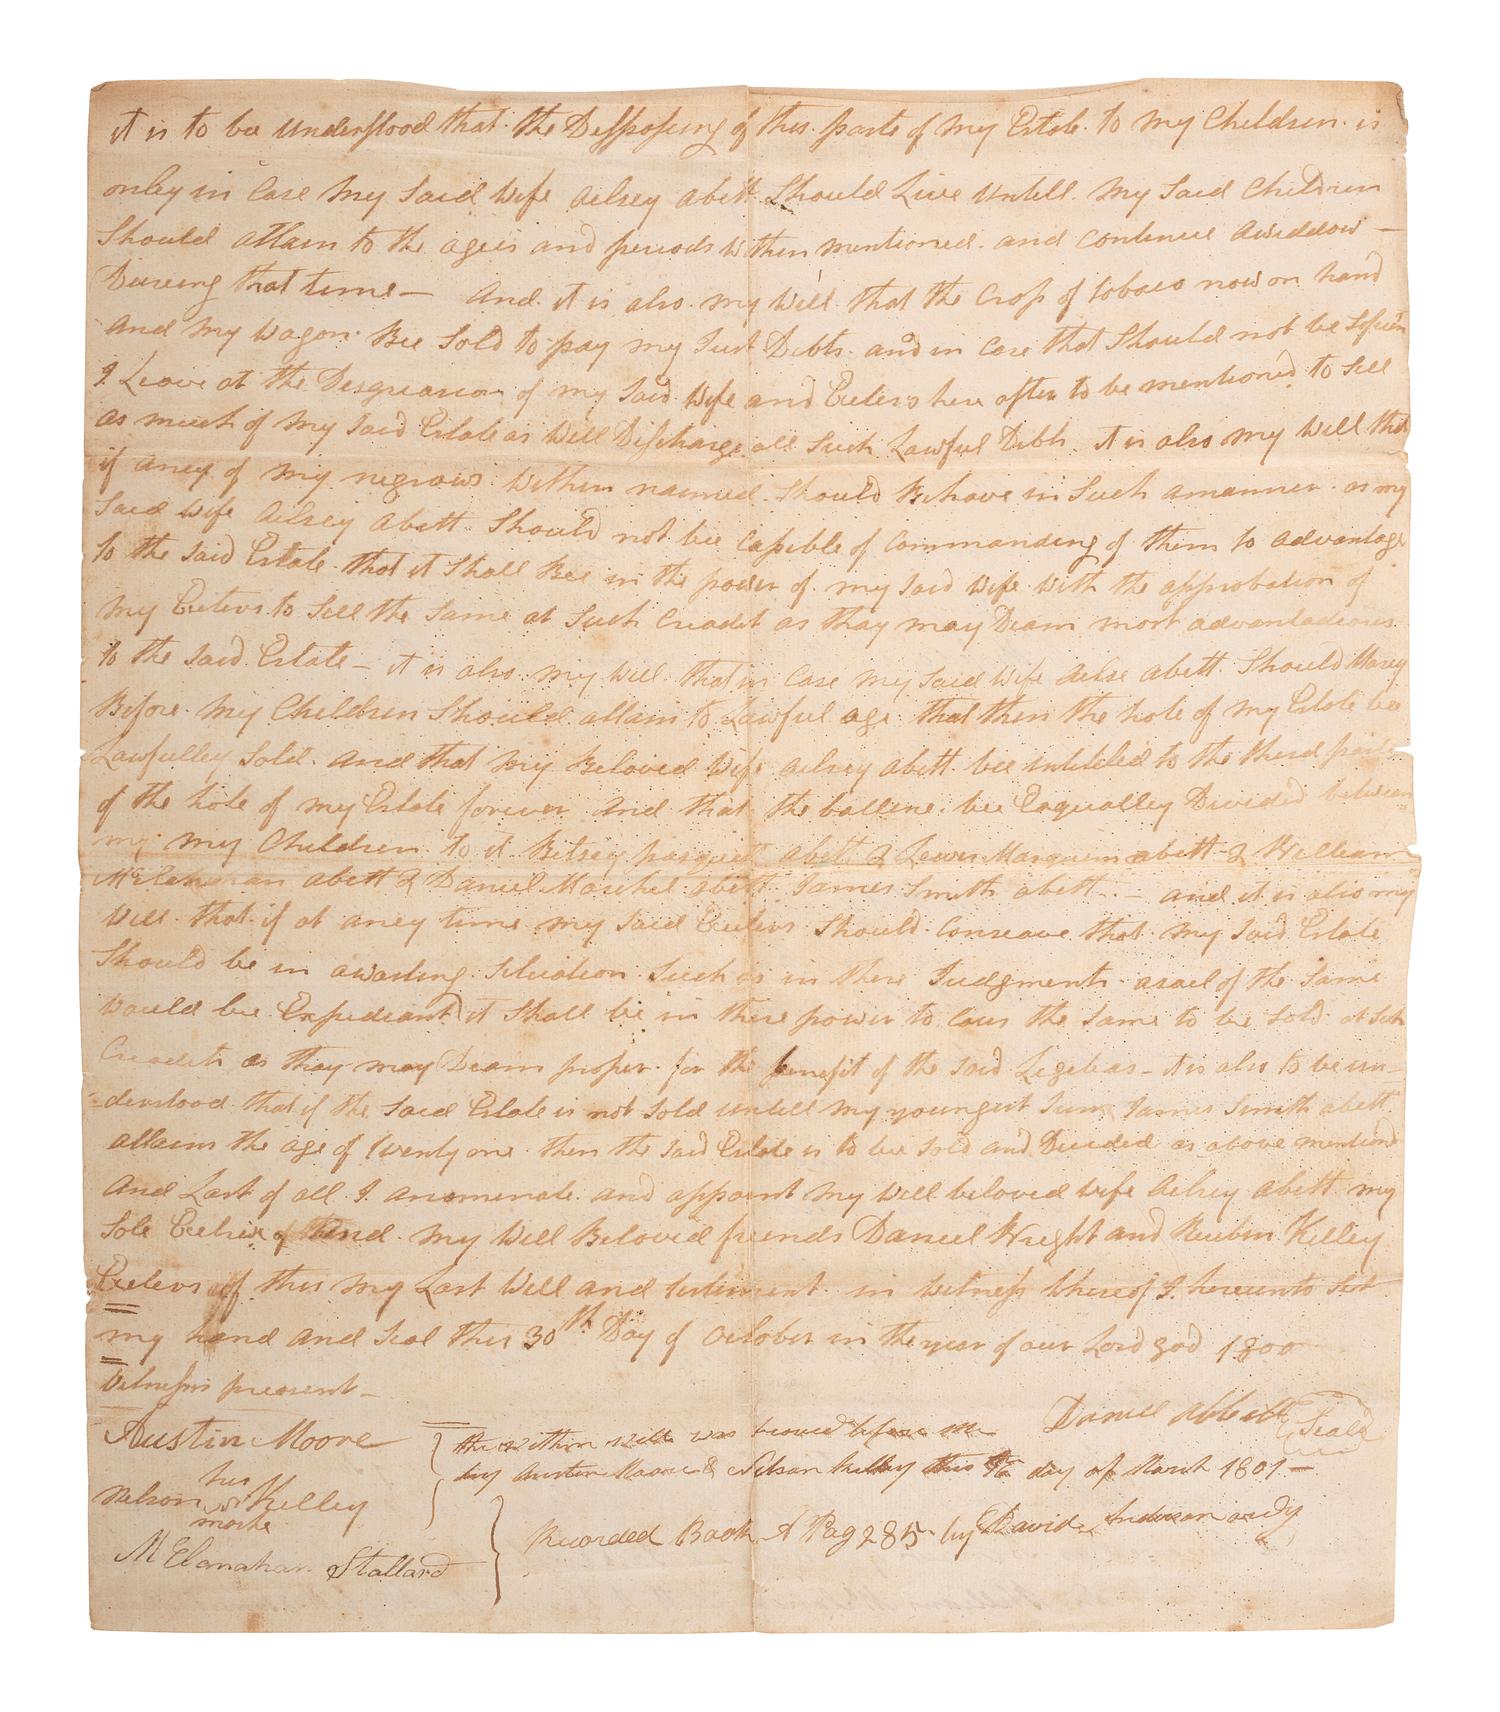 it is to bee understood that the Dessposing of this parte of my Estate to my Children is
onley in Case my Said wife Ailsey abett Should Live Untill my Said Children
Should attain to the ages and periods within mentioned and Continue awiddow —
Dureing that time — And it is also my will that the Crop of tobaco now on hand
And my wagon Bee Sold to pay my Just Debts and in Case that Should not be
I Leave at the of my Said wife and Exeters here after to be mentioned to Sell
as much of my Said Estate as will Discharge all Such Lawful Debts it is also my will that
if aney of my negrows within named Should Behave in Such amanner as my
Said wife Ailsey Abett Should not bee Capible of Commanding of them to advantage
to the Said Estate that it Shall Bee in the power of my Said wife with the approbation of
my Exeters to Sell the Same at Such Creadit as thay may Deam most
to the Said Estate — it is also my will that in Case my Said wife Ailse abett Should Marey
Before my Children Should attain to Lawful age that then the hole of my Estate bee
Lawfulley Sold And that my Beloved wife Ailsey abett bee intitled to the third parte
of the hole of my Estate forever And that the balline bee Eaqualley Devided between
my my Children to it Betsey abett & Lewis abett & William
McClanahan abett & Daniel abett James Smith abett — and it is also my
will that if at aney time my Said Exeters Should Conseave that my Said Estate
Should be in awasting Situation Such as in there Judgments asael of the Same
would bee Expediant it Shall be in there power to Caus the Same to be Sold at Such
Creadits as thay may Deam proper for the benefit of the Said — it is also to be un-
derstood that if the Said Estate is not Sold untill my youngest Sun James Smith abett
attains the age of twenty one then the Said Estate is to bee Sold and Devided as above mentiond
And Last of all I anomenate and appoint my well beloved wife Ailsey abett my
Sole of my Well Beloved friends Daniel Wright and Reubin Kelley
Exeters of this my Last Will and testiment in witness whereof I hereunto Set
my hand and Seal this 30th Day of October in the year of our Lord god 1800
Witnesses present —
Daniel Abbett Seald
Austin Moore
his
Nelson Kelley
marke
McClanahan Stallard
the within will was proved before me
by Austin Moore & Nelson Kelley this day of March 1801 —
Recorded Book A Pag 285 by David Anderson